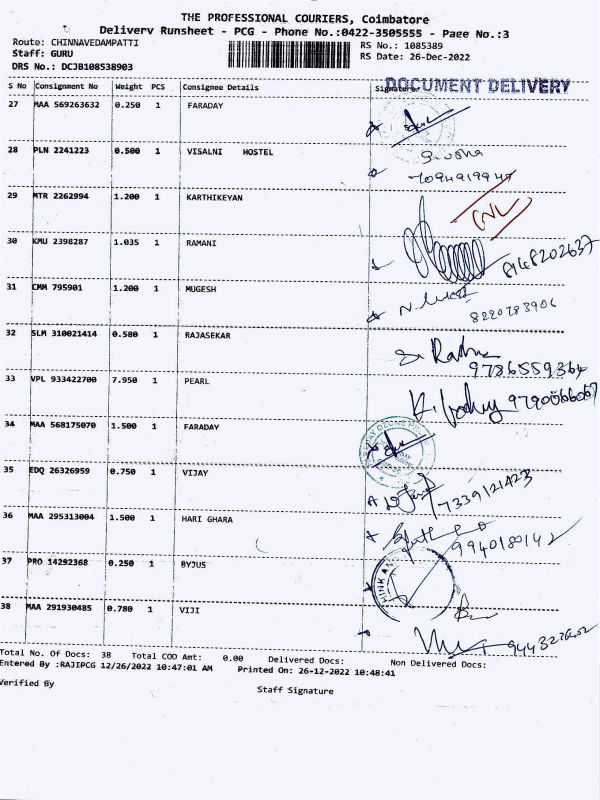 THE PROFESSIONAL COURIERS, Coimbatore
Delivery Runsheet - PCG - Phone No.:0422-3505555 - Page No.:3
Route: CHINNAVEDAMPATTI
RS No.: 1085389
Staff: GURU
RS Date: 26-Dec-2022
DRS No.: DCJB108538903
DOCUMENT DELIVERY
S No Consignment No Weight PCS Consignee Details Signature
27 MAA 569263632 0.250 1 FARADAY
28 PLN 2241223 0.500 1 VISALNI HOSTEL
7094919947
29 MTR 2262994 1.200 1 KARTHIKEYAN
30 KMU 2398287 1.035 1 RAMANI
8148202637
31 CMM 795901 1.200 1 MUGESH
8220783906
32 SLM 310021414 0.580 1 RAJASEKAR
9786559364
33 VPL 933422700 7.950 1 PEARL
34 MAA 568175070 1.500 1 FARADAY
35 EDQ 26326959 0.750 1 VIJAY
7339121423
36 MAA 295313004 1.500 1 HARI GHARA
9940180142
37 PRO 14292368 0.250 1 BYJUS
38 MAA 291930485 0.780 1 VIJI
Total No. Of Docs: 38 Total COD Amt: 0.00 Delivered Docs: Non Delivered Docs:
Entered By :RAJIPCG 12/26/2022 10:47:01 AM Printed On: 26-12-2022 10:48:41
Verified By
Staff Signature